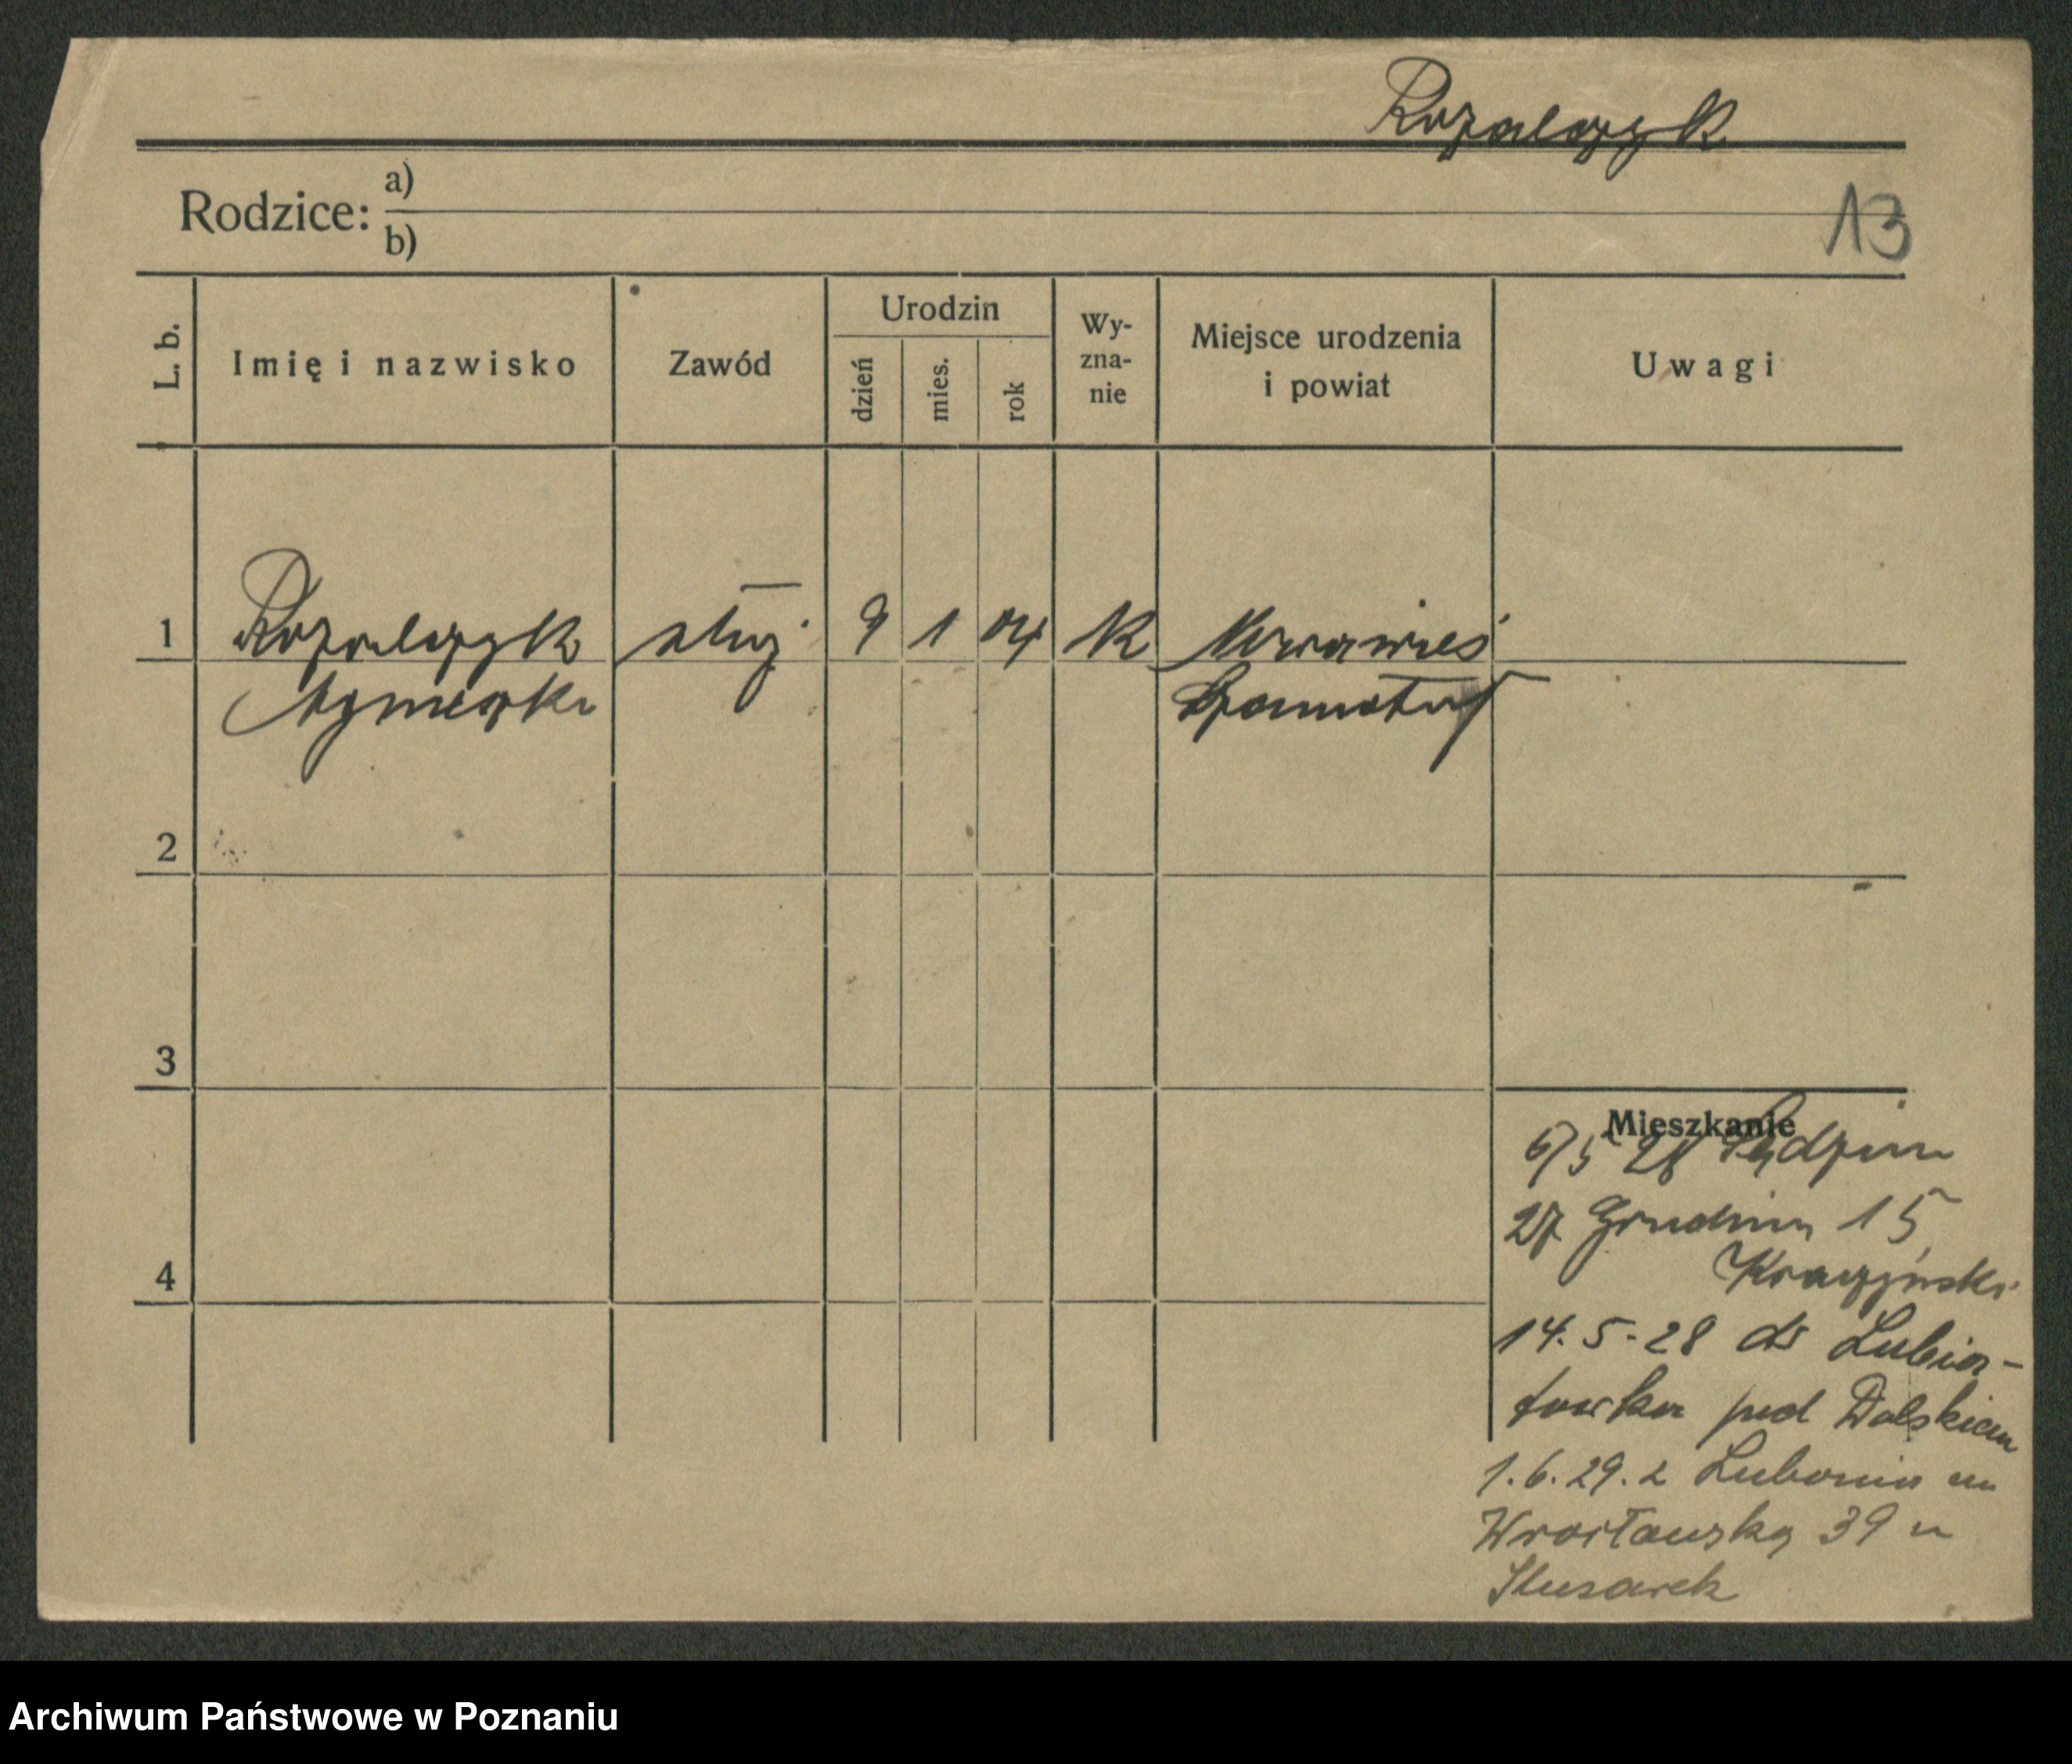 Rozalczyk
13
Rodzice: a)
b)
L. b.
Imię i nazwisko
Zawód
Urodzin
dzień
mies.
rok
Wy-
zna-
nie
Miejsce urodzenia
i powiat
Uwagi
1 Rozalczyk służ 9 1 04 K Nowawieś
Agnieszka Szamotuły
2
3
Mieszkanie
6/5 28
27 Grudnia 15
4
14.5-28 do Lubia-
towka pod Dolskiem
1.6.29. z Lubonia na
Wrocławską 39 u
Ślusarek
Archiwum Państwowe w Poznaniu